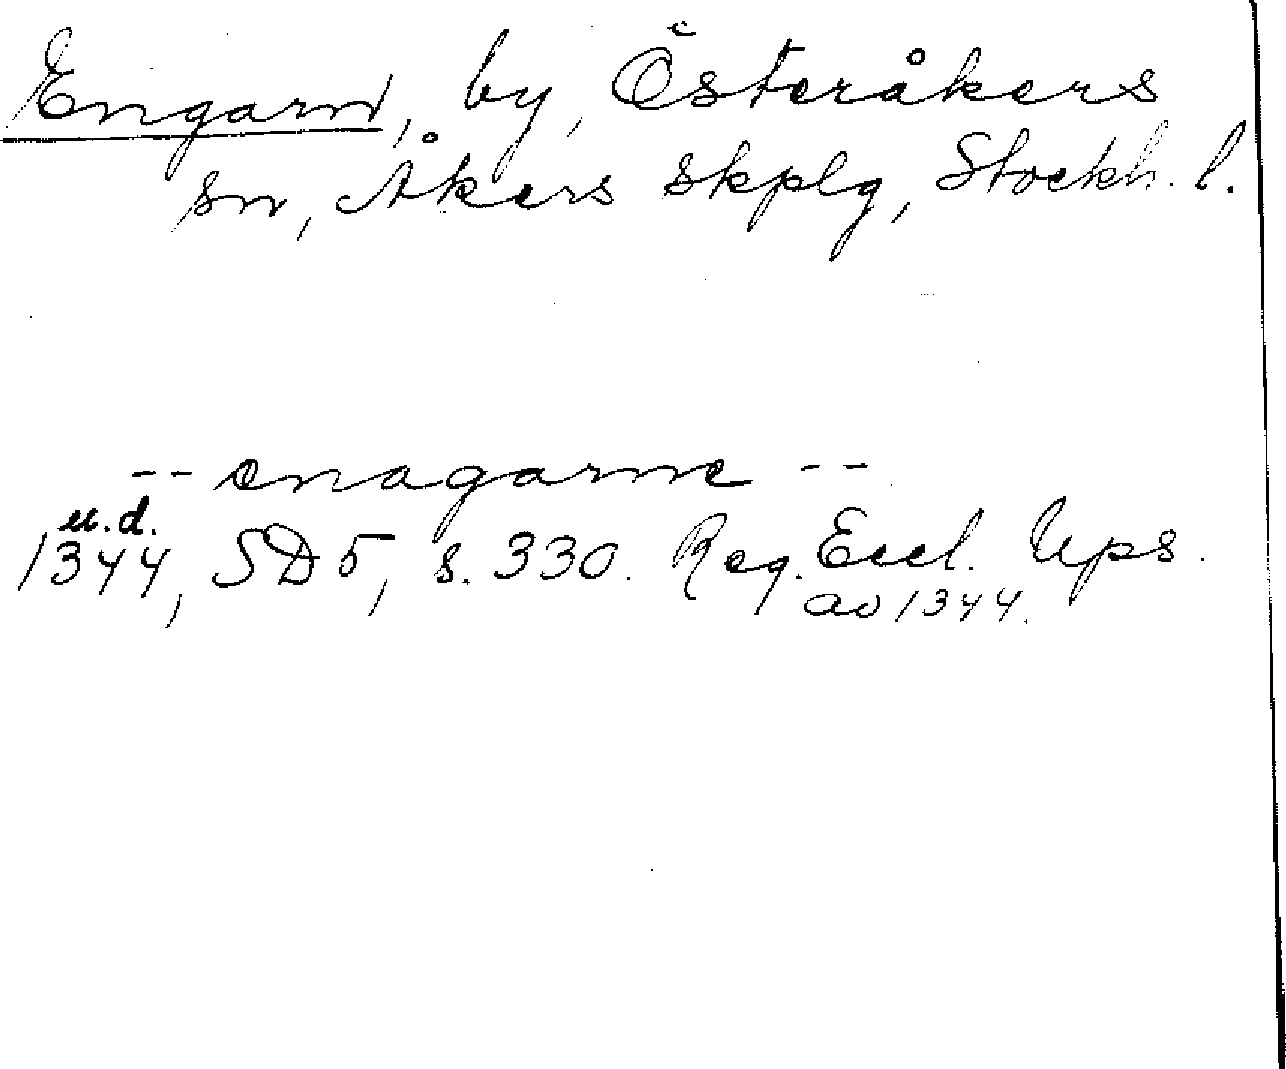 Engarn, by, Österåkers
sn, Åkers skplg, Stockh. l.
-- enagarne --
u.d.
1344, SD 5, s. 330. Reg. Eccl. Ups.
av 1344.